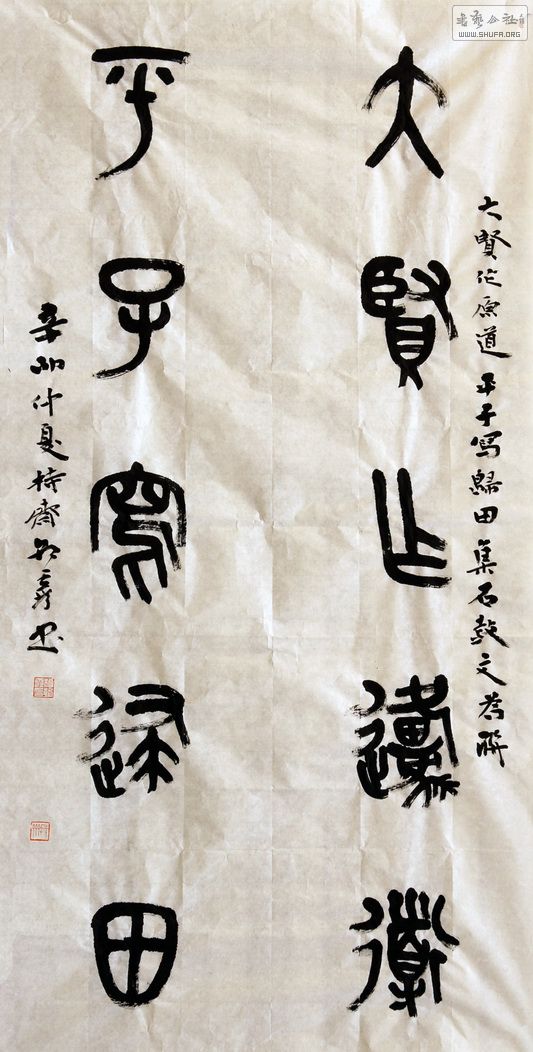 書藝公社
WWW.SHUFA.ORG
大賢作原道平子寫歸田集石鼓文為聯
大賢乍邍道
平子寫歸田
辛卯仲夏持齋書